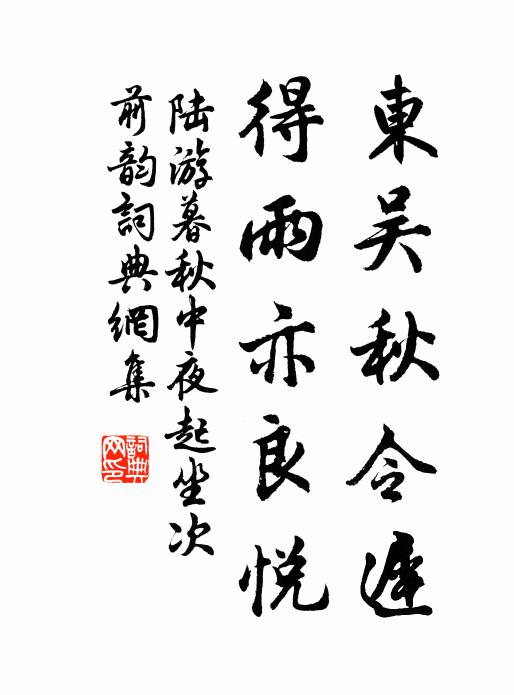 東吴秋令遲
得雨亦良悦
陆游暮秋中夜起坐次
前韵詞典網集
詞典网印